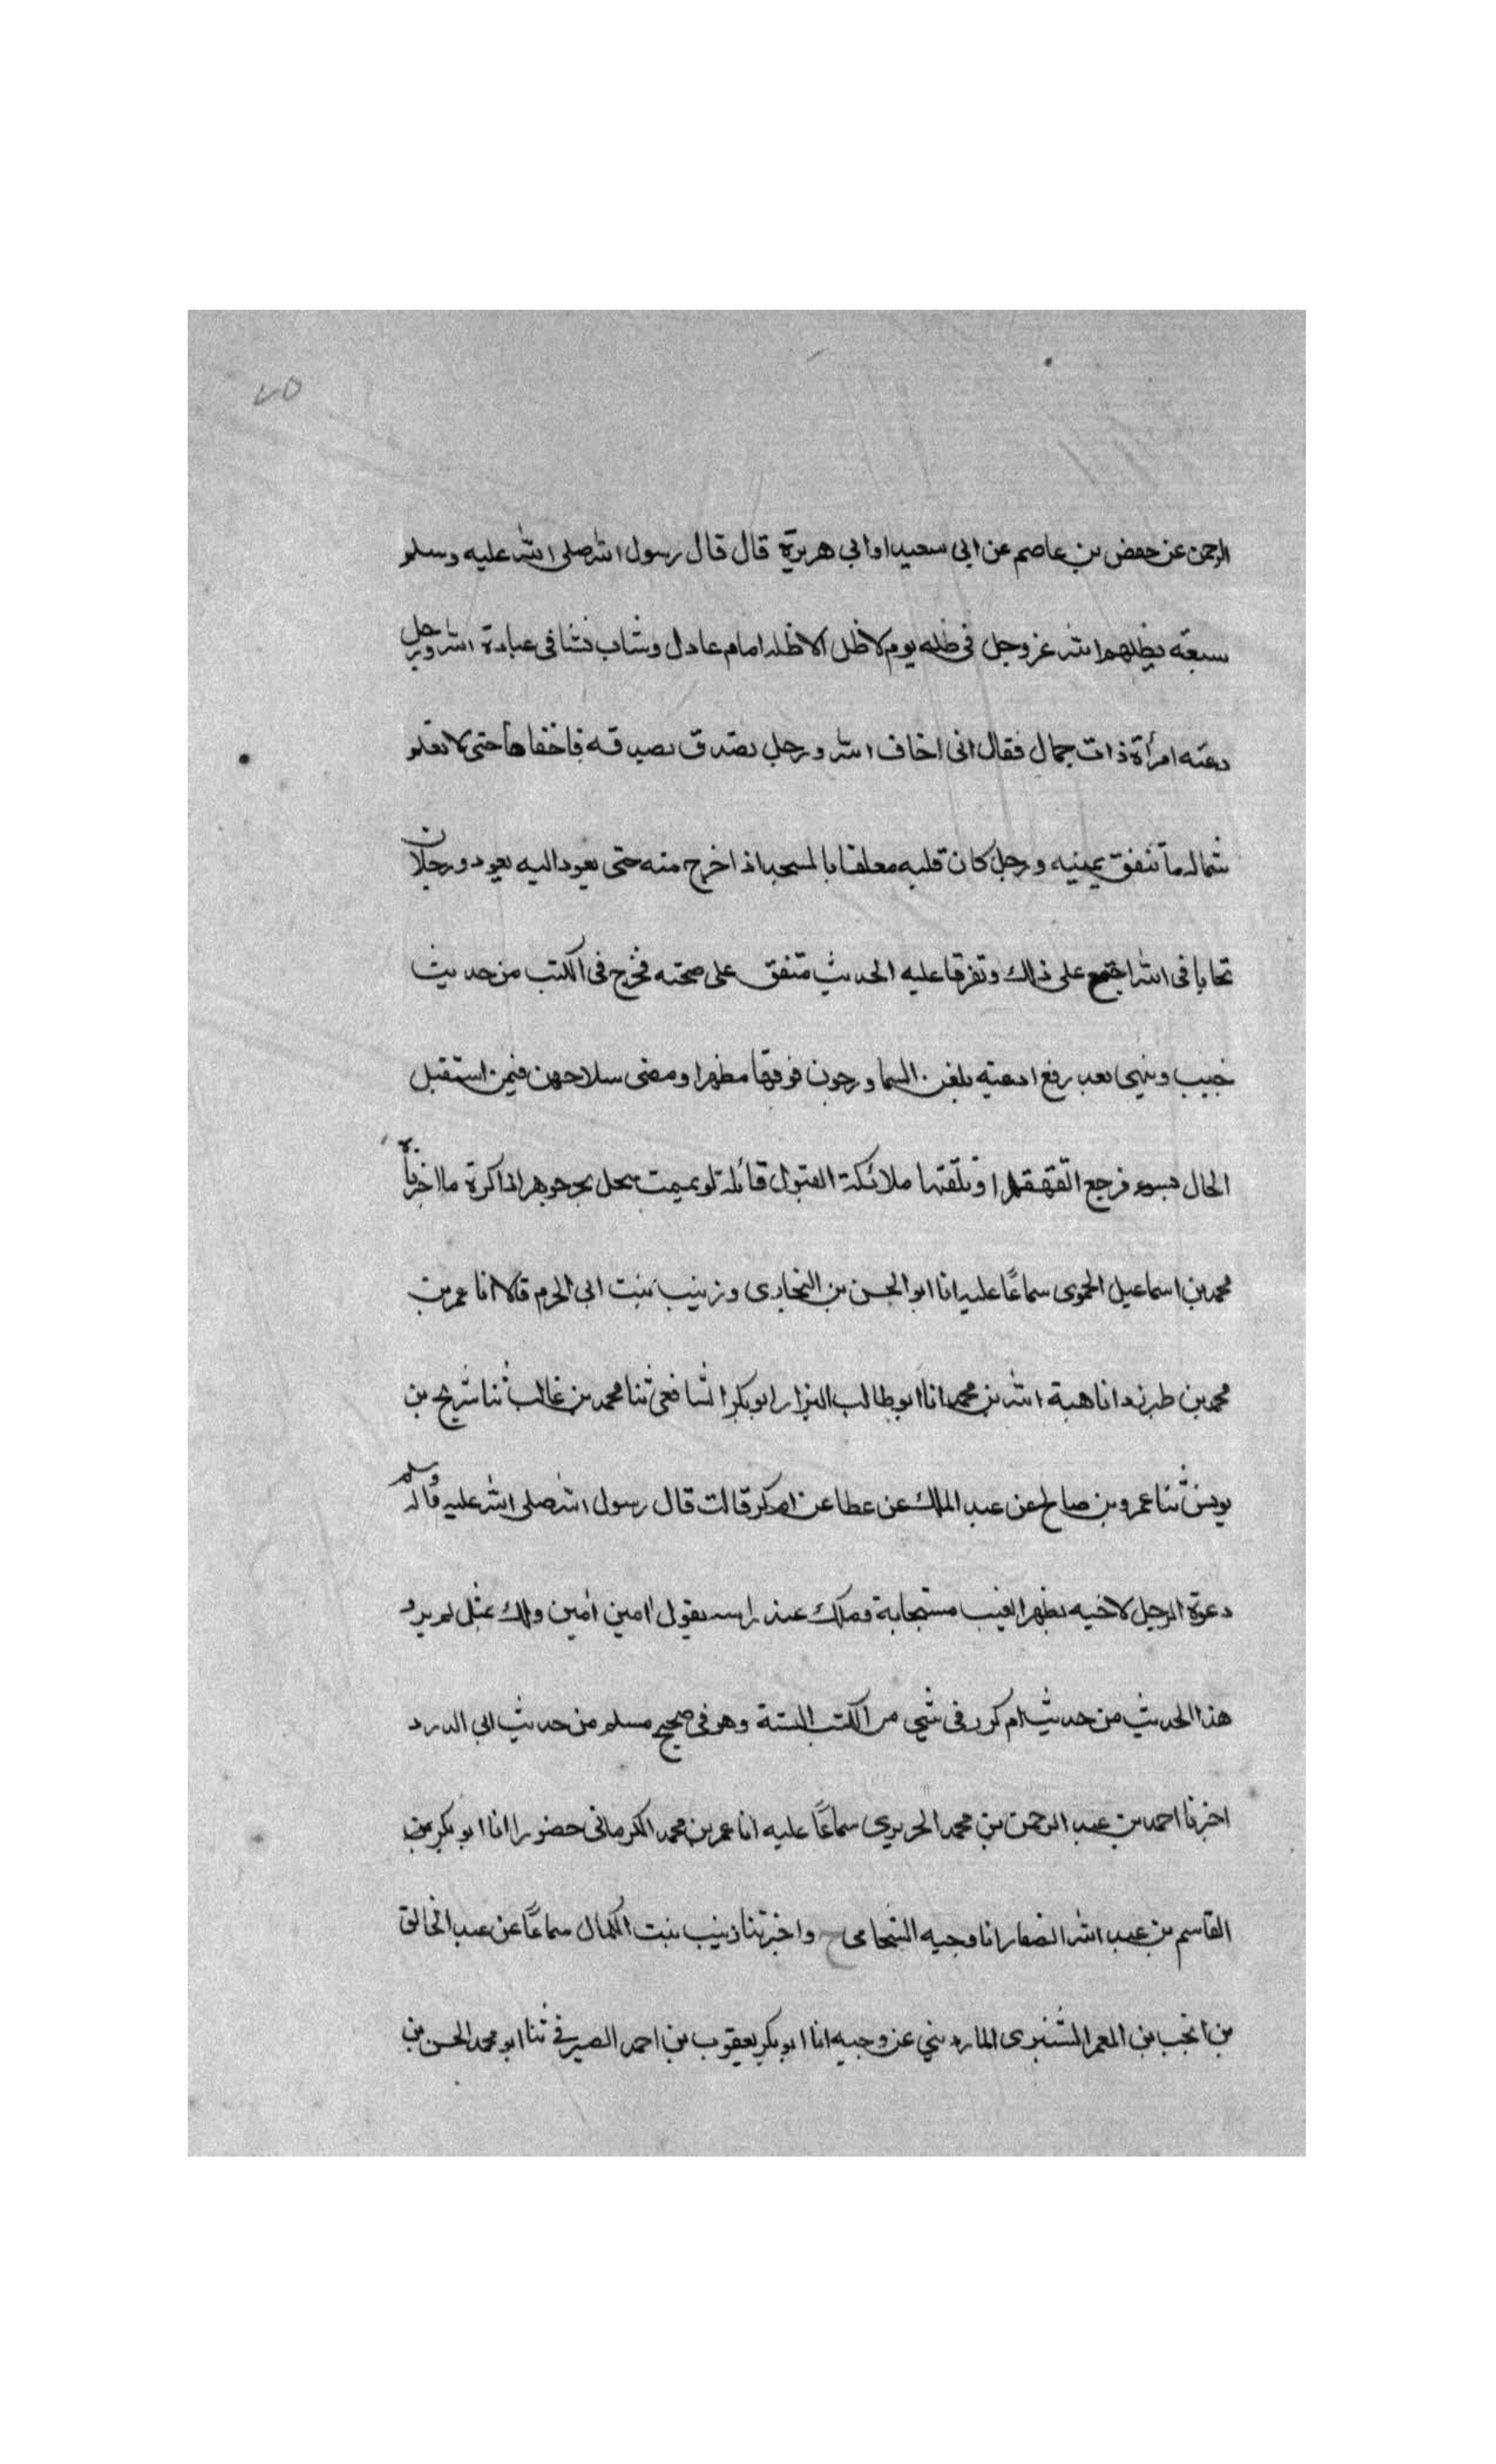 ٧٥
الرحمن عن حفص بن عاصم عن ابي سعيد او ابي هريرة قال قال رسول الله صلى الله عليه وسلم
سبعة يظلهم الله عز وجل في ظله يوم لا ظل الا ظله امام عادل وشاب نشا في عبادة الله ورجل
دعته امرأة ذات جمال فقال اني اخاف الله ورجل تصدق بصدقه فاخفاها حتى لا تعلم
شماله ما تنفق يمينه ورجل كان قلبه معلقا بالمسجد اذا خرج منه حتى يعود اليه يعود ورجلان
تحابا في الله اجتمع على ذلك وتفرقا عليه الحديث متفق على صحته مخرج في الكتب من حديث
خبيب وينهى بعد رفع ادعيه بلغن السما ورجون فوقها مظهرا ومضى سلاحهن فيمن استقبل
الحال فرجع القهقهرا وتلقتها ملائكة القبول قائلة لو ما اخبرنا به
محمد بن اسماعيل الحموى سماعًا عليه انا ابو الحسن بن البخارى وزينب بنت ابى الحرم قالا انا عمر بن
محمد بن طبرزد انا هبة الله بن محمد انا ابو طالب البزار ابو بكر الشافعى ثنا محمد بن غالب ثنا شريح بن
يونس ثنا عمرو بن صالح عن عبد الملك عن عطا عن ام كرز قالت قال رسول الله صلى الله عليه وسلم قاله
دعوة الرجل لاخيه بظهر الغيب مستجابة وملك عند راسه يقول امين امين ولك بمثل لم يرد
هذا الحديث من حديث ام كرز في شي من الكتب الستة وهو في صحيح مسلم من حديث ابي الدرد
اخبرنا احمد بن عبد الرحمن بن محمد الحريري سماعًا عليه انا عمر بن محمد الكرمانى حضورا انا ابو بكر بن
القاسم بن عبد الله الصفار انا وجيه الشحامى ح واخبرتنا زينب بنت الكمال سماعًا عن عبد الخالق
بن انجب بن المعمر النشتبرى الماردينى عن وجيه انا ابو بكر يعقوب بن احمد الصيرفي ثنا ابو محمد الحسن بن